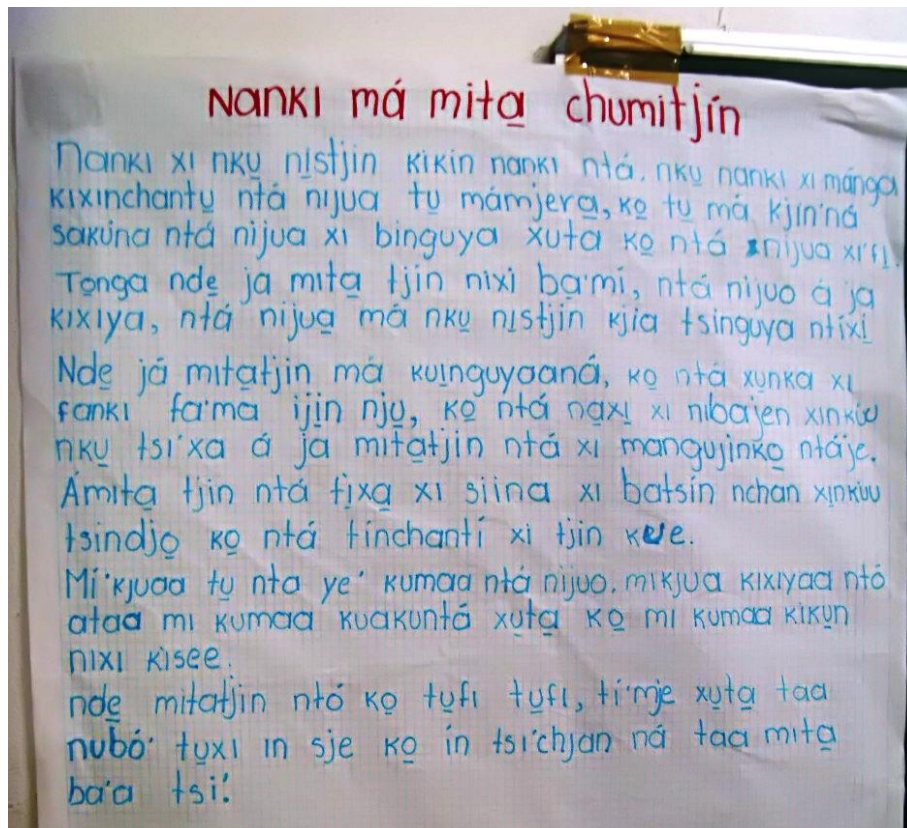 Nanki má mita̱ chumitjín
Nanki xi nku̱ ni̱stjin kikin nanki ntá. nku̱ nanki xi mánga
kixinchantu̱ ntá nijua tu̱ mámjera̱, ko̱ tu̱ má kjin'ná
sakúna ntá nijua xi binguya xuta ko̱ ntá nijua xi'fi.
To̱nga nde̱ ja mita̱ tjin nixi ba'mí, ntá nijuo á ja
kixiya, ntá nijua̱ má nku̱ ni̱stjin kjia tsinguya ntixi̱
Nde̱ já mita̱tjin má kui̱nguyaaná, ko̱ ntá xu̱nka xi
fanki fa'ma iji̱n nju̱, ko̱ ntá na̱xi̱ xi nibajen
nku̱ tsi'xa á ja mita̱tjin ntá xi mangujinko̱ ntáje.
Ámita̱ tjin ntá fi̱xa̱ xi siina xi batsín nchan xi̱nkuu
tsindjo̱ ko̱ ntá tínchantí xi tjin kue.
Mí'kjuaa tu̱ nta ye' kumaa ntá nijuo. mikjua kixiyaa ntó
ataa mi kumaa kuakuntá xu̱ta̱ ko̱ mi kumaa kiku̱n
nixi kisee.
nde̱ mitatjin ntó ko̱ tu̱fi tu̱fi, tí'mje xu̱ta̱ taa
nubó' tu̱xi in sje ko̱ ín tsi'chjan ná taa mita̱
ba'a tsi'.